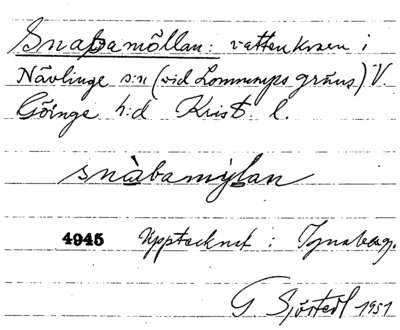 Snabamöllan: vattenkvarn i
Nävlinge s:n (vid Lommarps gräns) V.
Göinge h:d Krist. l.
snàbamýlan
4945 Upptecknat i Ignaberga.
G. Sjöstedt 1951